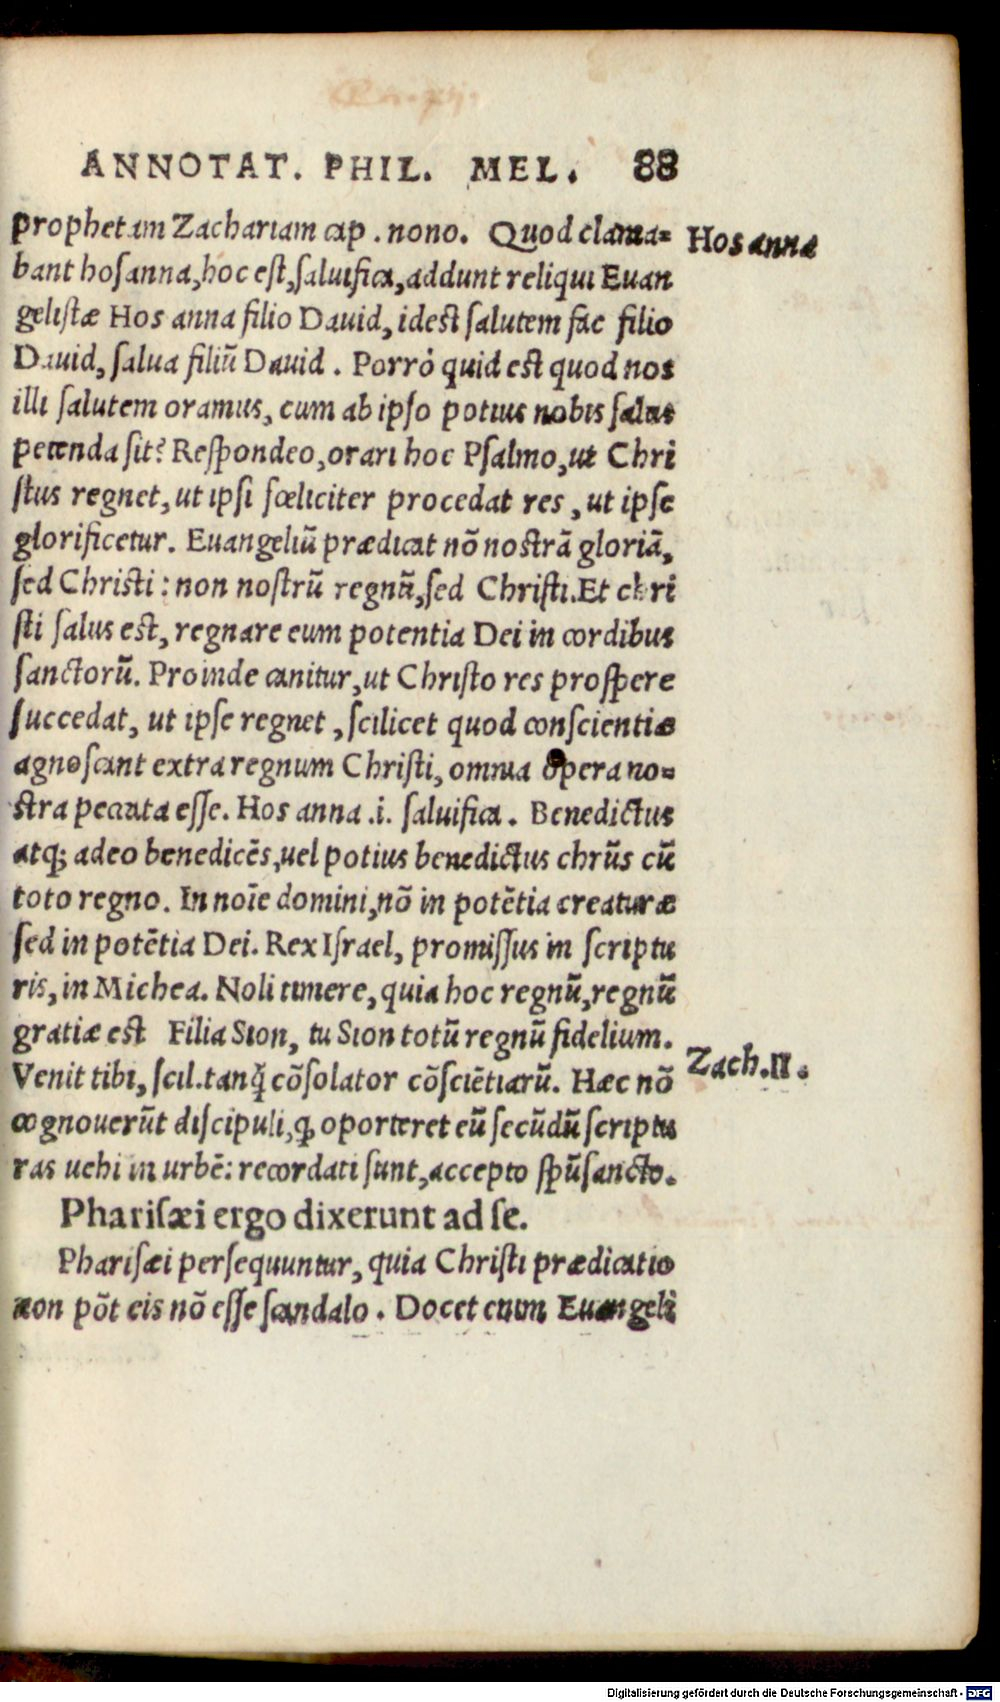 ANNOTAT. PHIL. MEL. 88
prophetam Zachariam cap. nono. Quod clama=
Hos anna
bant hosanna, hoc est, saluifica, addunt reliqui Euan
gelistæ Hos anna filio Dauid, idest salutem fac filio
Dauid, salua filiũ Dauid. Porrò quid est quod nos
illi salutem oramus, cum ab ipso potius nobis salus
petenda sit? Respondeo, orari hoc Psalmo, ut Chri
stus regnet, ut ipsi fœliciter procedat res, ut ipse
glorificetur. Euangeliũ prædicat nõ nostrã gloriã,
sed Christi: non nostrũ regnũ, sed Christi. Et chri
sti salus est, regnare eum potentia Dei in cordibus
sanctorũ. Proinde canitur, ut Christo res prospere
succedat, ut ipse regnet, scilicet quod conscientiæ
agnoscant extra regnum Christi, omnia opera no=
stra peccata esse. Hos anna .i. saluifica. Benedictus
atq; adeo benedicẽs, uel potius benedictus chrũs cũ
toto regno. In noĩe domini, nõ in potẽtia creaturæ
sed in potẽtia Dei. Rex Israel, promissus in scriptu
ris, in Michea. Noli timere, quia hoc regnũ, regnũ
gratiæ est Filia Sion, tu Sion totũ regnũ fidelium.
Zach. II.
Venit tibi, scil. tanq̃ cõsolator cõsciẽtiarũ. Hæc nõ
cognouerũt discipuli, ꝙ oporteret eũ secũdũ scriptu
ras uehi in urbẽ: recordati sunt, accepto spũsancto.
Pharisæi ergo dixerunt ad se.
Pharisæi persequuntur, quia Christi prædicatio
non põt eis nõ esse scandalo. Docet enim Euangeli
Digitalisierung gefördert durch die Deutsche Forschungsgemeinschaft - DFG